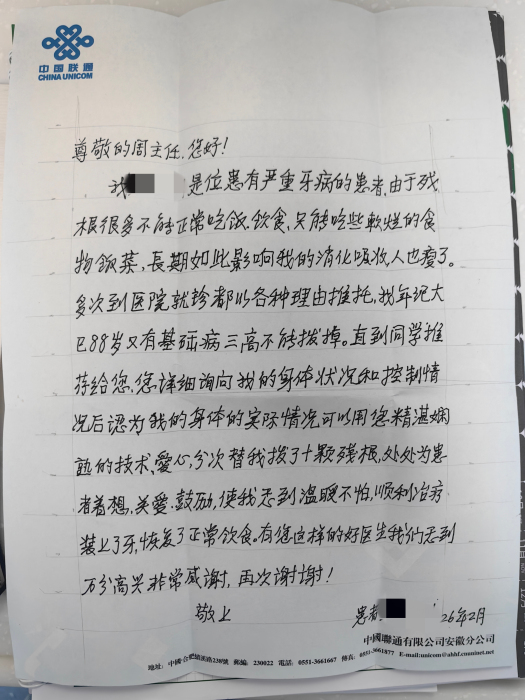 中国联通
CHINA UNICOM
尊敬的周主任.您好！
我 是位患有严重牙病的患者,由于残
根很多不能正常吃饭.饮食,只能吃些軟烂的食
物飯菜,長期如此影响我的消化吸收,人也瘦了。
多次到医院就珍都以各种理由推托,我年纪大
已88岁又有基础病三高不能拨掉。直到同学推
荐给您,您详细询问我的身体状况和控制情
况后认为我的身体的实际情况可以用您精湛娴
熟的技术、爱心,分次替我拨了十颗残根,处处为患
者着想,关爱.鼓励,使我感到温暖不怕,顺利治疗.
装上了牙,恢复了正常饮食。有您这样的好医生我们感到
万分高兴非常感谢,再次谢谢！
敬上 患者 26年2月
中國聯通有限公司安徽分公司
地址：中國·合肥 路238號 郵編：230022 電話：0551-3661667 傳真：0551-3661877 E-mail:unicom@ahhf.cnuninet.com